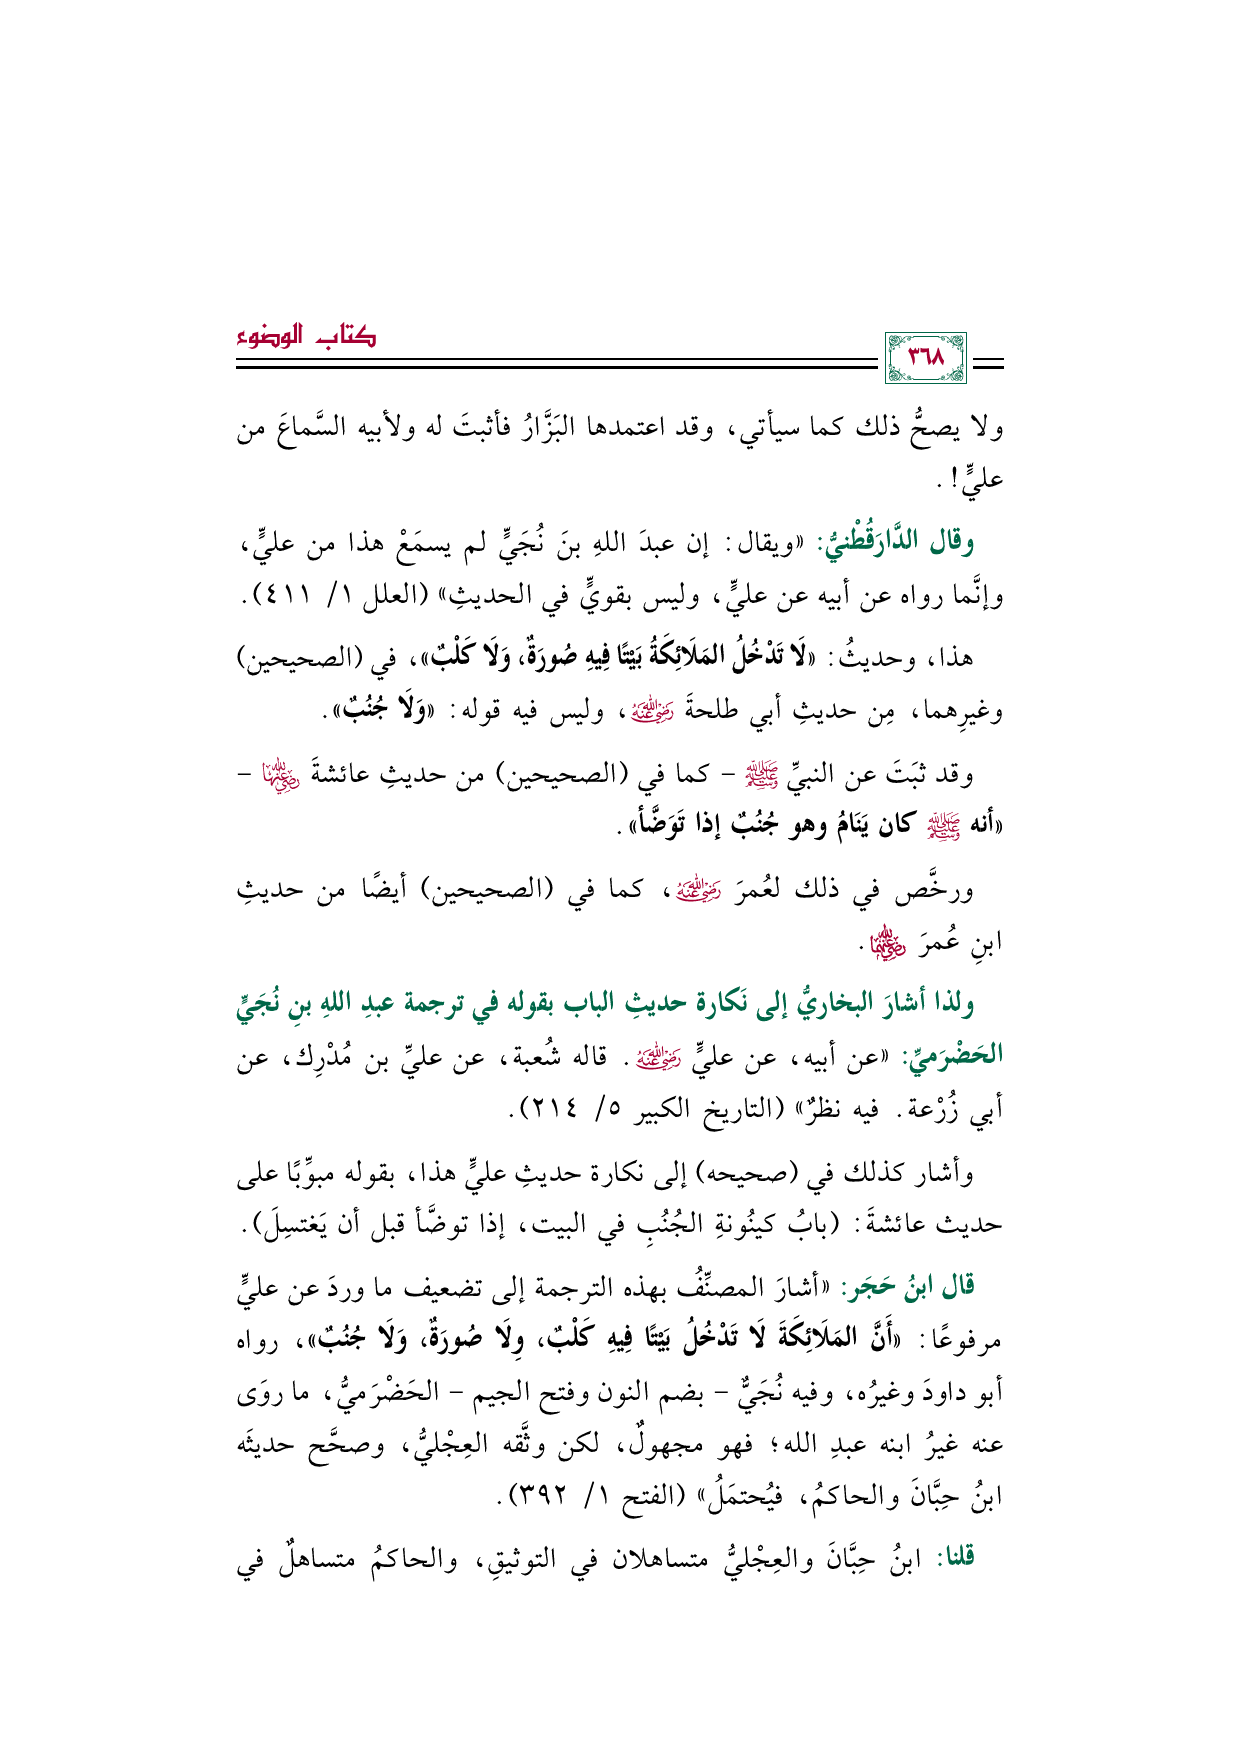 كتاب الوضوء
٣٦٨
ولا يصحُّ ذلك كما سيأتي، وقد اعتمدها البَزَّارُ فأثبتَ له ولأبيه السَّماعَ من
عليٍّ! .
وقال الدَّارَقُطْنيُّ: «ويقال: إن عبدَ اللهِ بنَ نُجَيٍّ لم يسمَعْ هذا من عليٍّ،
وإنَّما رواه عن أبيه عن عليٍّ، وليس بقويٍّ في الحديثِ» (العلل ١/ ٤١١).
هذا، وحديثُ: «لَا تَدْخُلُ المَلَائِكَةُ بَيْتًا فِيهِ صُورَةٌ، وَلَا كَلْبٌ»، في (الصحيحين)
وغيرِهما، مِن حديثِ أبي طلحةَ رضي الله عنه، وليس فيه قوله: «وَلَا جُنُبٌ».
وقد ثبَتَ عن النبيِّ ﷺ - كما في (الصحيحين) من حديثِ عائشةَ رضي الله عنها -
«أنه ﷺ كان يَنَامُ وهو جُنُبٌ إذا تَوَضَّأ».
ورخَّص في ذلك لعُمرَ رضي الله عنه، كما في (الصحيحين) أيضًا من حديثِ
ابنِ عُمرَ رضي الله عنهما.
ولذا أشارَ البخاريُّ إلى نَكارة حديثِ الباب بقوله في ترجمة عبدِ اللهِ بنِ نُجَيٍّ
الحَضْرَميِّ: «عن أبيه، عن عليٍّ رضي الله عنه. قاله شُعبة، عن عليِّ بن مُدْرِك، عن
أبي زُرْعة. فيه نظرٌ» (التاريخ الكبير ٥/ ٢١٤).
وأشار كذلك في (صحيحه) إلى نكارة حديثِ عليٍّ هذا، بقوله مبوِّبًا على
حديث عائشةَ: (بابُ كينُونةِ الجُنُبِ في البيت، إذا توضَّأ قبل أن يَغتسِلَ).
قال ابنُ حَجَر: «أشارَ المصنِّفُ بهذه الترجمة إلى تضعيف ما وردَ عن عليٍّ
مرفوعًا: «أَنَّ المَلَائِكَةَ لَا تَدْخُلُ بَيْتًا فِيهِ كَلْبٌ، وِلَا صُورَةٌ، وَلَا جُنُبٌ»، رواه
أبو داودَ وغيرُه، وفيه نُجَيٌّ - بضم النون وفتح الجيم - الحَضْرَميُّ، ما روَى
عنه غيرُ ابنه عبدِ الله؛ فهو مجهولٌ، لكن وثَّقه العِجْليُّ، وصحَّح حديثَه
ابنُ حِبَّانَ والحاكمُ، فيُحتمَلُ» (الفتح ١/ ٣٩٢).
قلنا: ابنُ حِبَّانَ والعِجْليُّ متساهلان في التوثيقِ، والحاكمُ متساهلٌ في